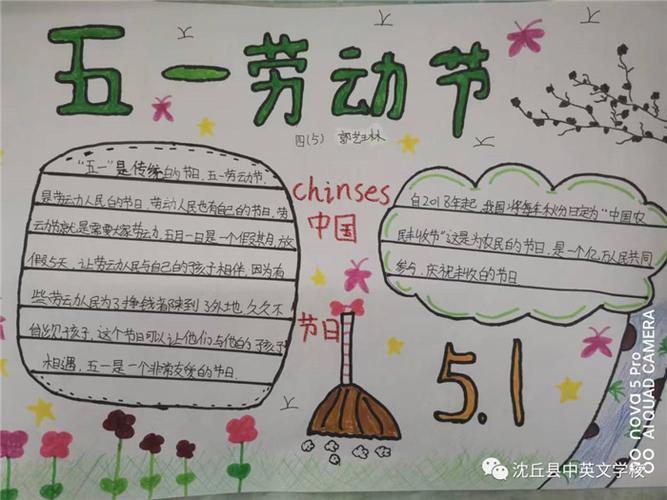 五一劳动节
四(5) 郭艺琳
"五一"是传统的节日,五一劳动节,
是劳动人民的节日,劳动人民也有自己的节日,劳
动节就是需要大家劳动,五月一日是一个假期,放
假5天,让劳动人民与自己的孩子相伴,因为有
些劳动人民为了挣钱都来到了外地,久久不
自次孩子,这个节可以让他们与他的子孩子
相遇,五一是一个非常友爱的节日.
chinses
中国
节日
自2018年起,我国将每年秋分日定为"中国农
民丰收节"这是为农民的节日,是一个亿万人民共同
参与,庆祝丰收的节日
5.1
nova 5 Pro
AI QUAD CAMERA
沈丘县中英文学校